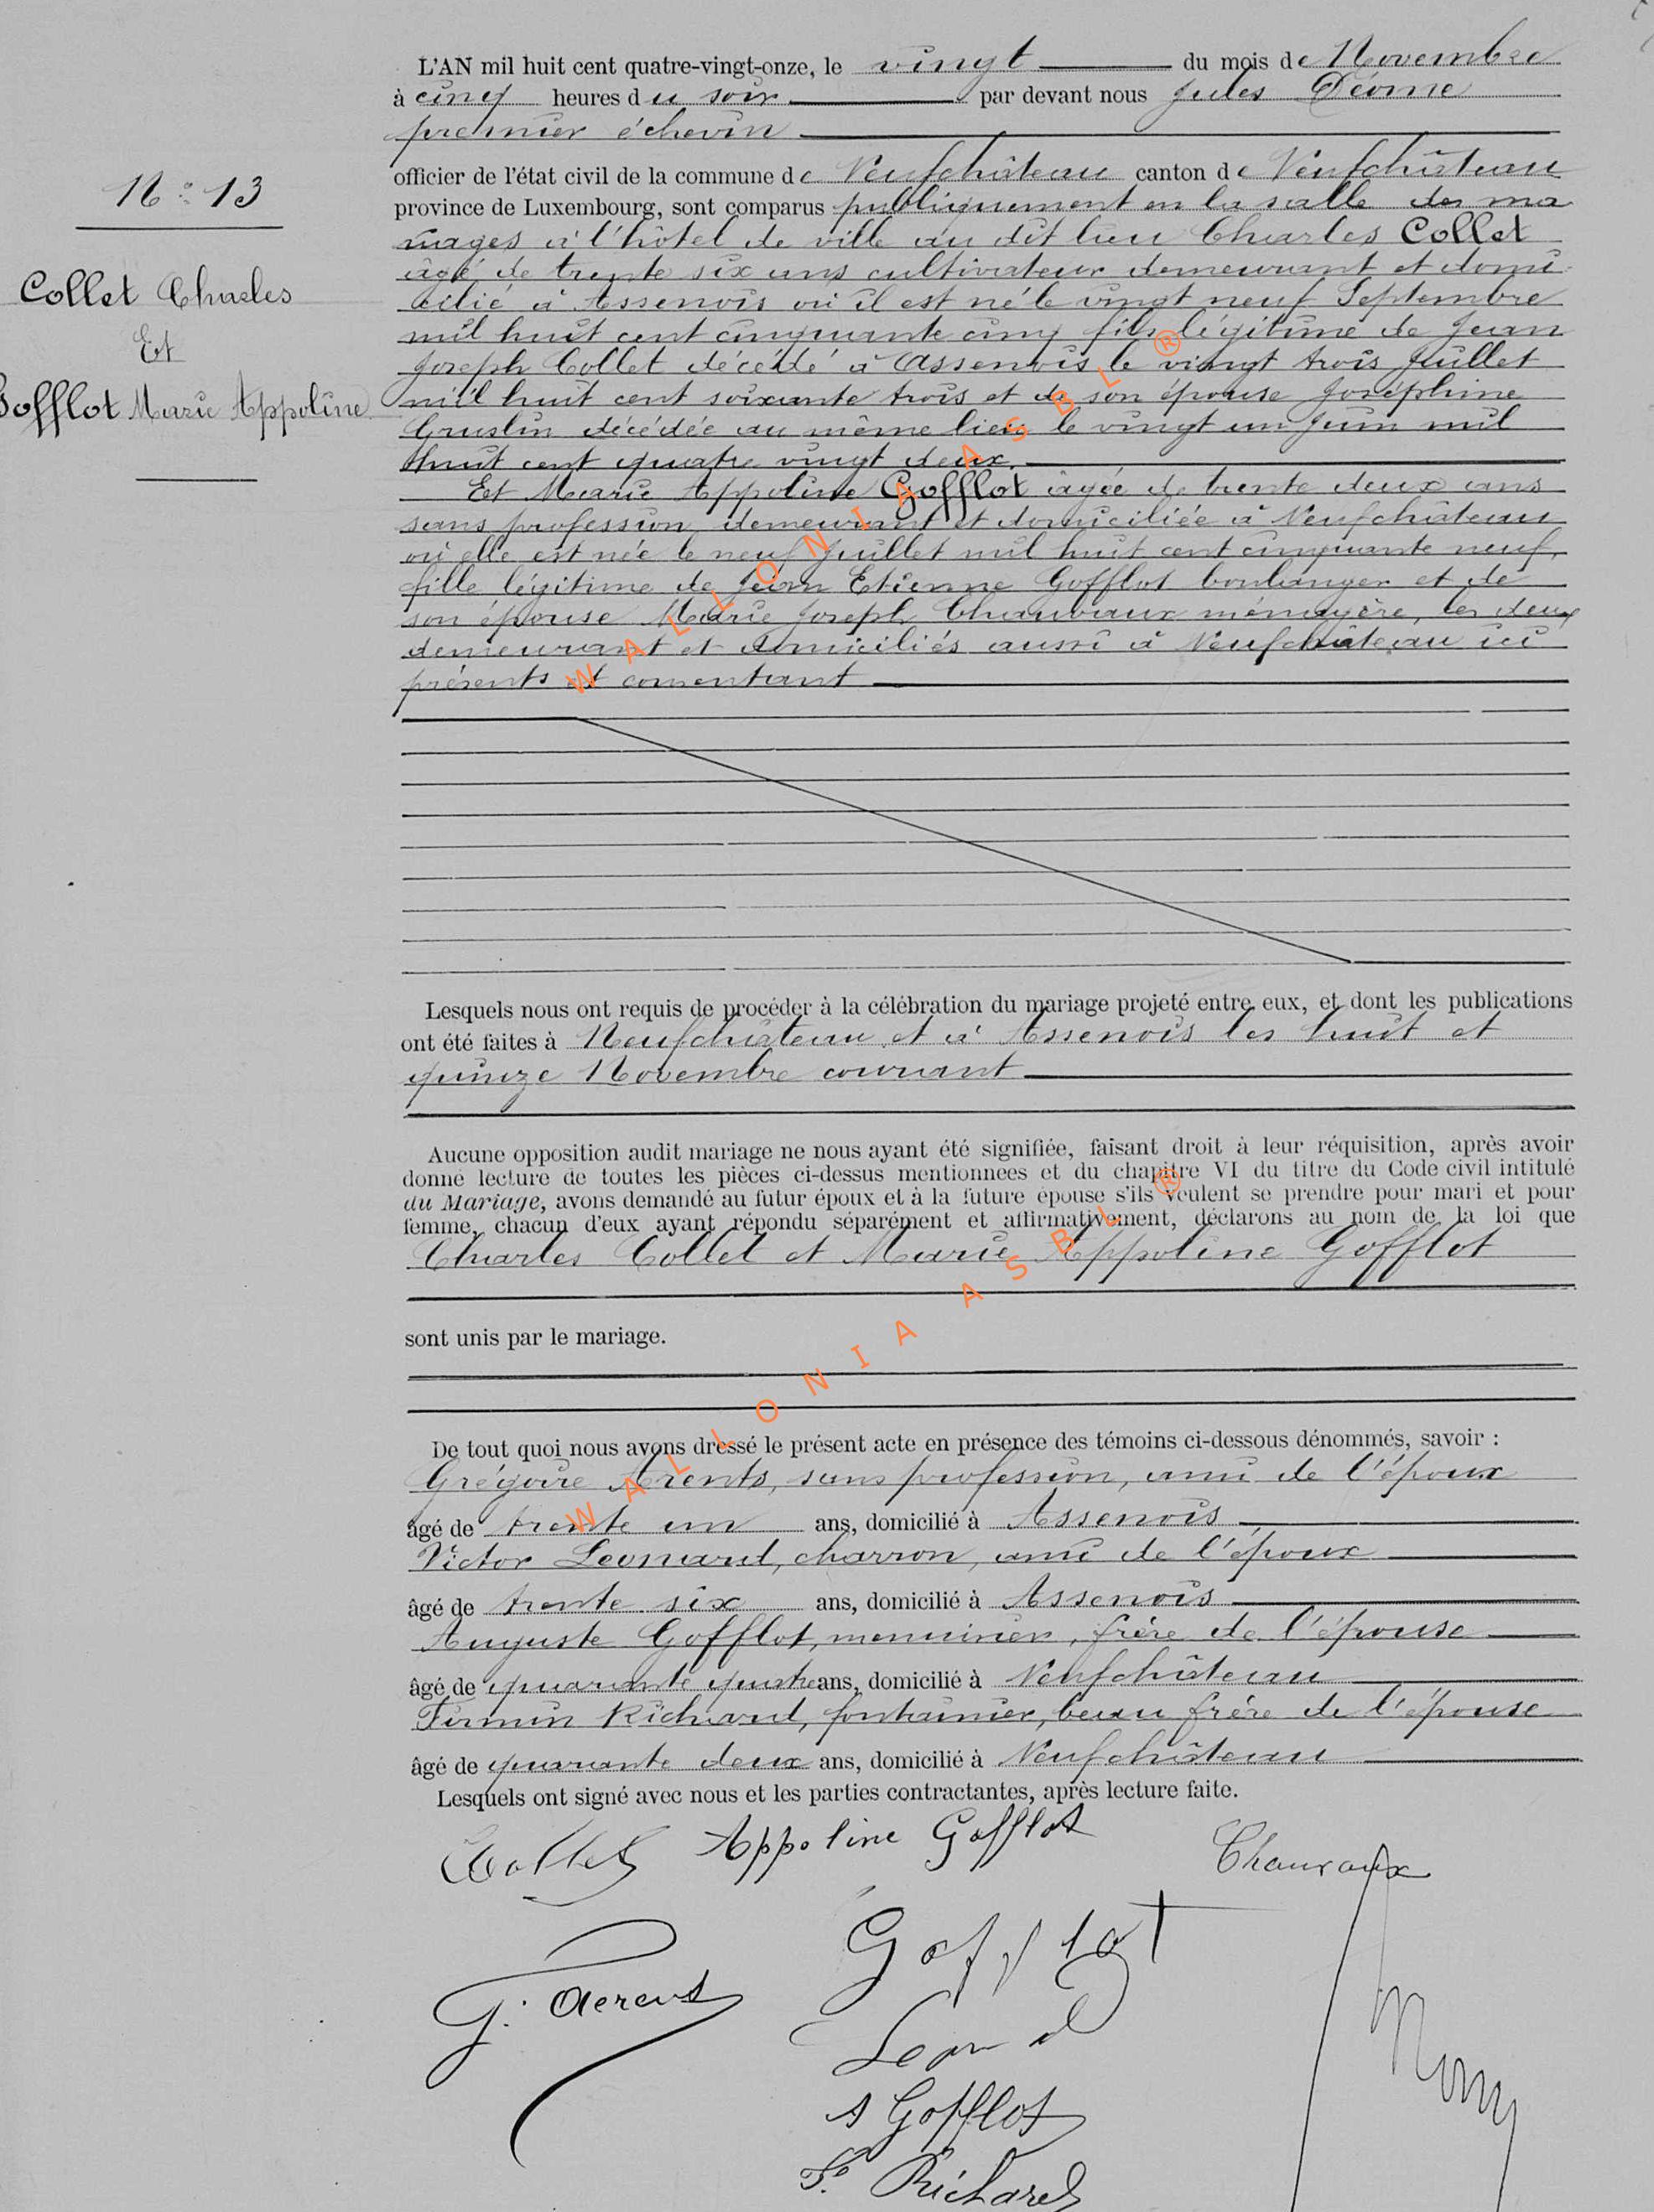 L'AN mil huit cent quatre-vingt-onze, le vingt du mois de Novembre
à cinq heures du soir par devant nous Jules Déome
premier échevin
officier de l'état civil de la commune de Neufchâteau canton de Neufchâteau
N° 13
province de Luxembourg, sont comparus publiquement en la salle des ma
riages à l'hôtel de ville au dit lieu Charles Collet
âgé de trente six ans cultivateur demeurant et domi
Collet Charles
cilié à Assenois où il est né le vingt neuf Septembre
mil huit cent cinquante cinq fils légitime de Jean
Et
Joseph Collet décédé à Assenois le vingt trois Juillet
Gofflot Marie Appoline
mil huit cent soixante trois et de son épouse Joséphine
Gruslin décédée au même lieu le vingt un Juin mil
huit cent quatre vingt deux.
Et Marie Appoline Gofflot âgée de trente deux ans
sans profession demeurant et domiciliée à Neufchâteau
où elle est née le neuf Juillet mil huit cent cinquante neuf,
fille légitime de Jean Etienne Gofflot boulanger et de
son épouse Marie Joseph Chauvaux ménagère, les deux
demeurant et domiciliés aussi à Neufchâteau ici
présents et consentant
WALLONIA ASBL ®
Lesquels nous ont requis de procéder à la célébration du mariage projeté entre eux, et dont les publications
ont été faites à Neufchâteau et à Assenois les huit et
quinze Novembre courant
Aucune opposition audit mariage ne nous ayant été signifiée, faisant droit à leur réquisition, après avoir
donné lecture de toutes les pièces ci-dessus mentionnées et du chapitre VI du titre du Code civil intitulé
du Mariage, avons demandé au futur époux et à la future épouse s'ils veulent se prendre pour mari et pour
femme, chacun d'eux ayant répondu séparément et affirmativement, déclarons au nom de la loi que
Charles Collet et Marie Appoline Gofflot
sont unis par le mariage.
WALLONIA ASBL ®
De tout quoi nous avons dressé le présent acte en présence des témoins ci-dessous dénommés, savoir :
Grégoire Arents, sans profession, ami de l'époux
âgé de trente un ans, domicilié à Assenois
Victor Leonard, charron, ami de l'époux
âgé de trente six ans, domicilié à Assenois
Auguste Gofflot, menuisier, frère de l'épouse
âgé de quarante quatre ans, domicilié à Neufchâteau
Firmin Richard, fontainier, beau frère de l'épouse
âgé de quarante deux ans, domicilié à Neufchâteau
Lesquels ont signé avec nous et les parties contractantes, après lecture faite.
Collet Appoline Gofflot Chauvaux
Gofflot
G. Aerens
A Gofflot
F. Richard